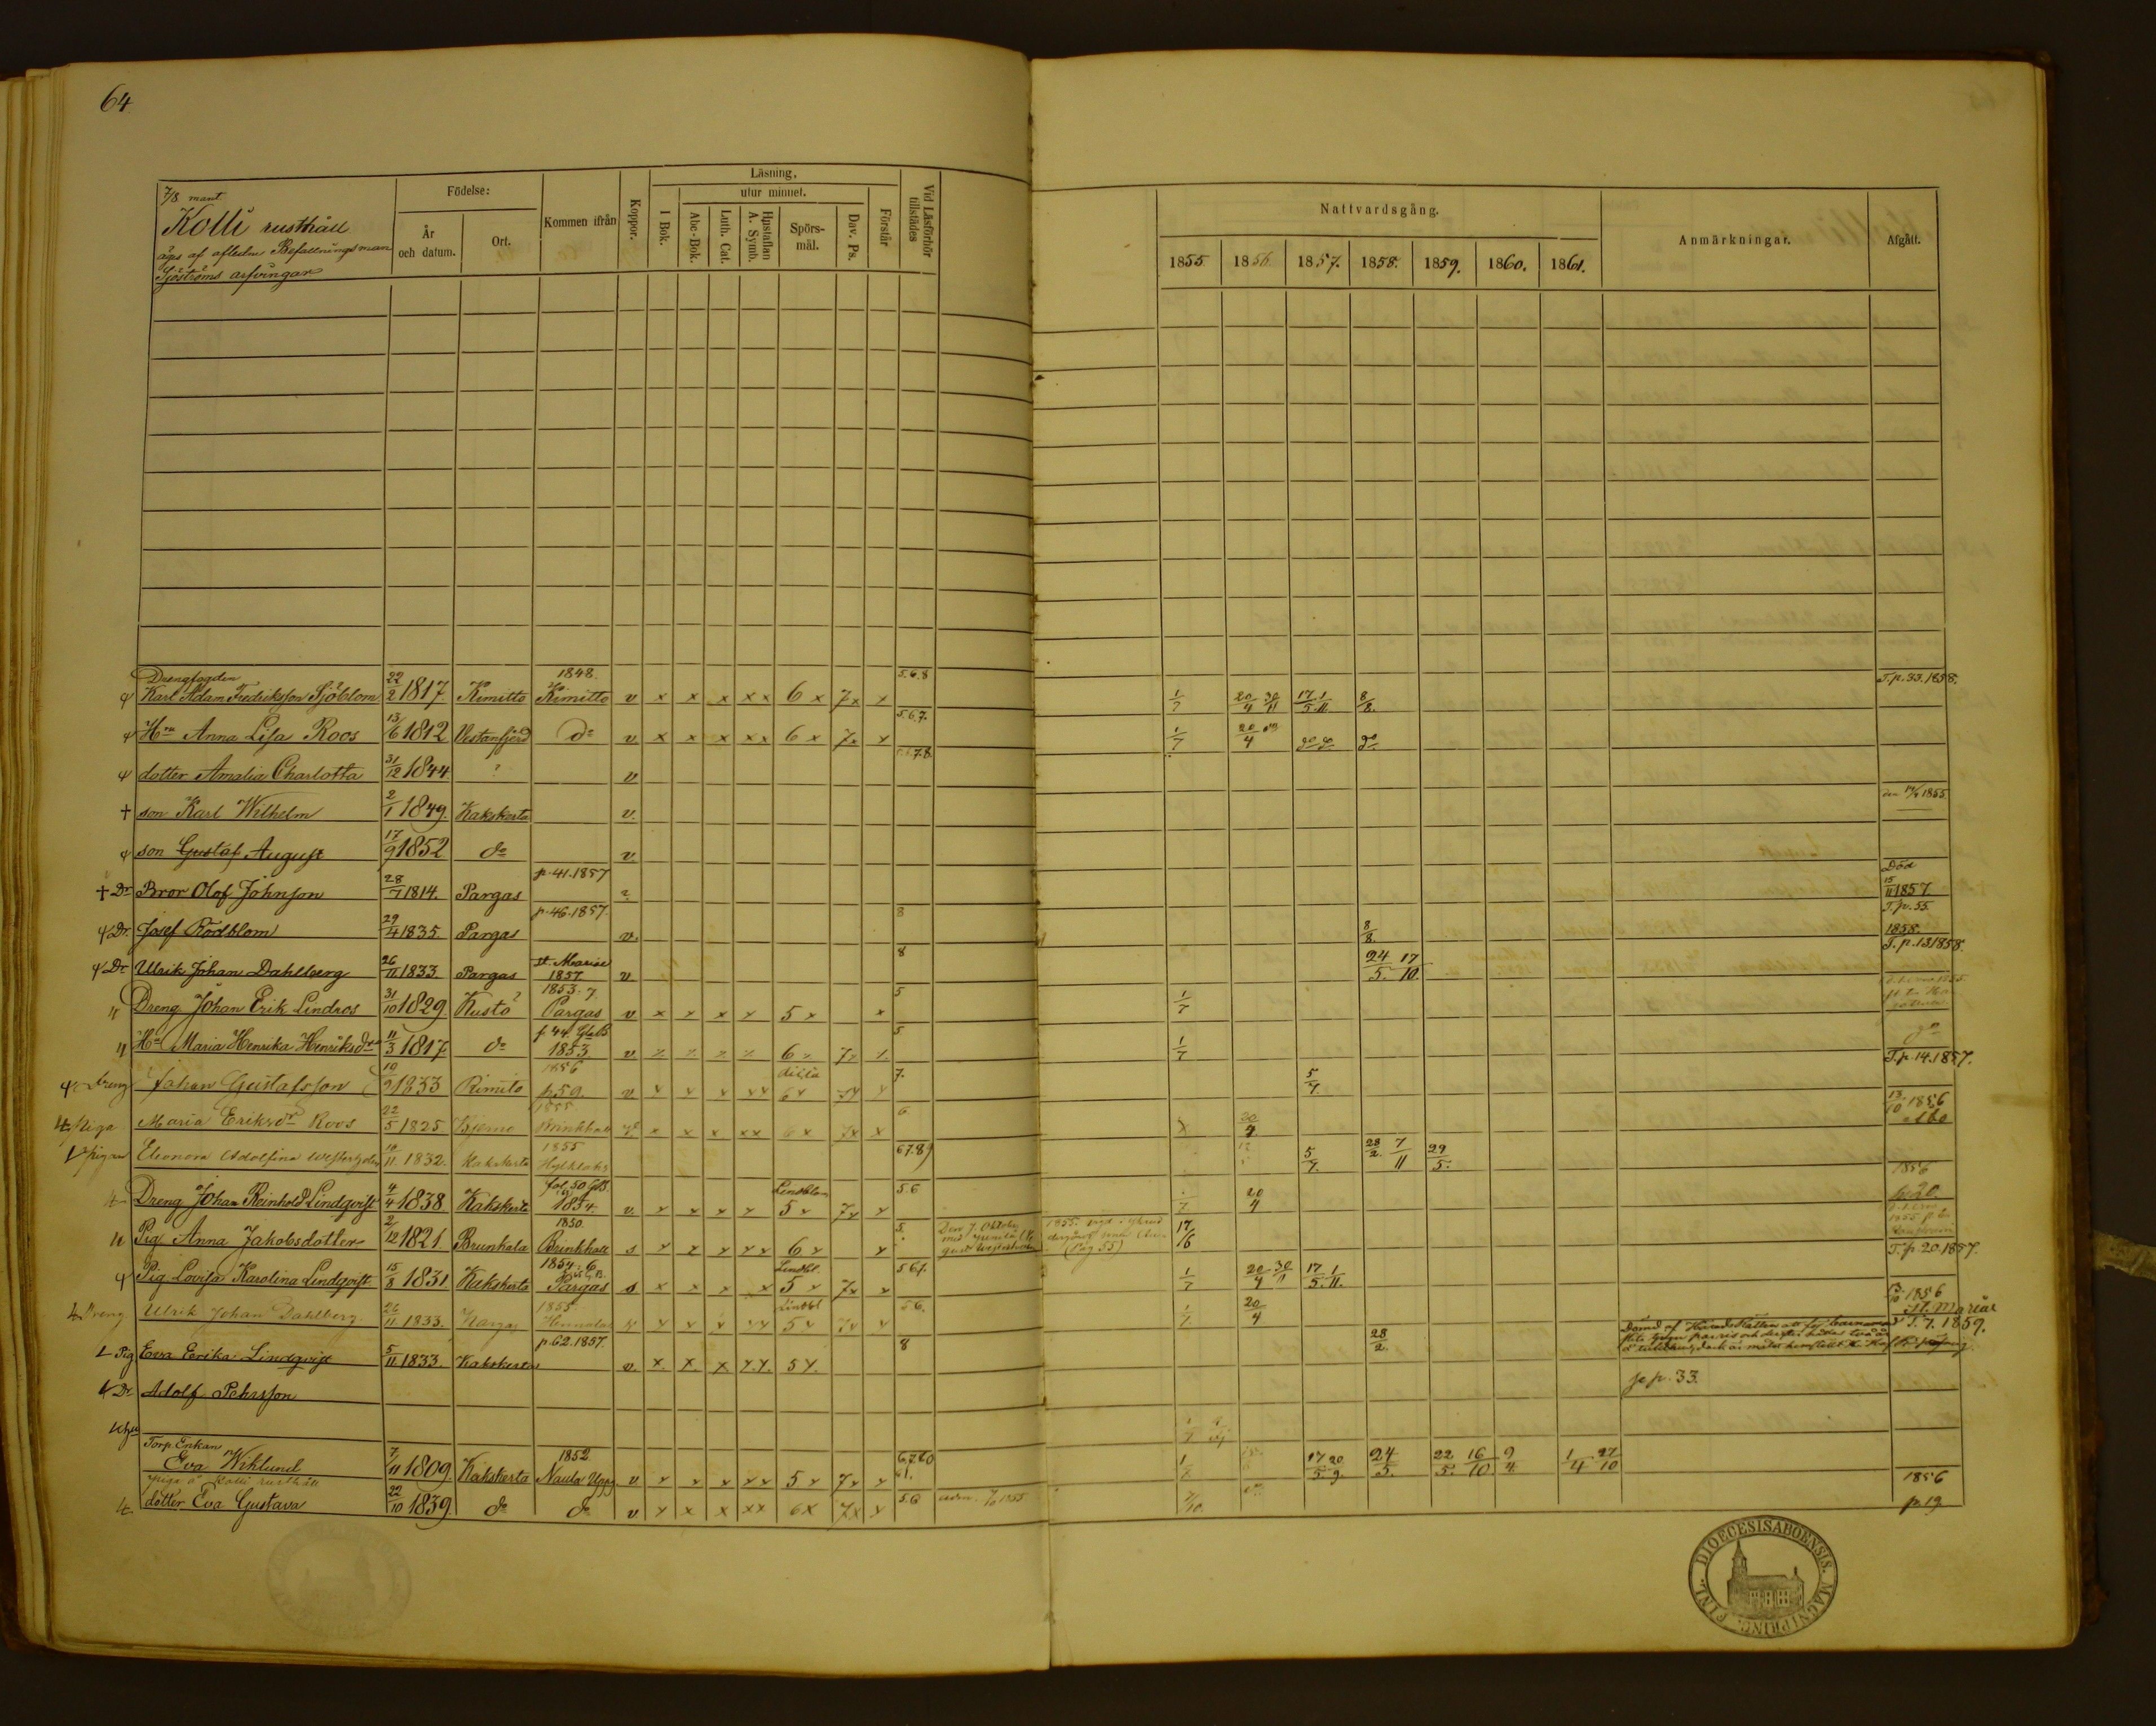 64
7/8 mant
Kolli rusthåll
äges af afledne Befallningsman
Sjöströms arfvingar
Födelse:
År och datum.
Ort.
Kommen ifrån
Koppor.
Läsning.
I Bok.
utur minnet.
Abc-Bok.
Luth. Cat.
Hustaflan A. Symb.
Spörs-mål.
Dav. Ps.
Förstår
Vid Läsförhör tillstädes
Nattvardsgång.
1855 1856 1857. 1858. 1859. 1860. 1861.
Anmärkningar.
Afgått.
Drengfogden 22 1848. 5.6.8 T.p.33.1858.
Karl Adam Fredriksson Sjöblom 2 1817 Kimitto Kimitto v x x x xx 6 x 7x x 1/7 20/4 30/11 17/5. 1/11. 8/8.
Hu Anna Lisa Roos 13/6 1812 Vestanfjerd do v x x x xx 6 x 7x x 5.6.7. 1/7 20/4 do do do do
dotter Amalia Charlotta 31/12 1844. ? v 7.8
† son Karl Wilhelm 2/1 1849. Kakskerta v. 1855
son Gustaf August 17/9 1852 do v
† Dr Bror Olof Johnson 28/7 1814. Pargas p.41.1857 ? Död 15/11 1857.
Dr. Josef Rödblom 29/4 1835. Pargas p.46.1857. v. 8 8/8. T.p.55. 1858.
Dr Ulrik Johan Dahlberg 26/11 1833. Pargas St Mariæ 1857 v 8 24/5. 17/10. T.p.13 1858.
Dreng Johan Erik Lindros 31/10 1829. Kustö 1853.7. Pargas v x x x x 5 x x 5 1/7
Hu Maria Henrika Henriksdr 11/3 1817. do f 44 1853 v x x x x 6 x 7x x 5 1/7 do
dreng Johan Gustafsson 10/9 1833 Kimito 1856 p.59. v x x x xx 6x 7x x 7. 5/7. T.p.14.1857.
piga Maria Eriksdr Roos 22/5 1825 Kjemo 1855 Brinkhall x x x xx 6 x 7x x 6 20/4 13/10 1856 Åbo
pigan Eleonora Adolfina 10/11 1832. Kakskerta 1855 6.7.8.9 5/7. 28/2. 7/11 29/5.
Dreng Johan Reinhold Lindqvist 4/4 1838 Kakskerta fol.50 1854. v. x x x x Lindblom 5 x 7x x 5.6 20/4 1856 p.20.
Pig Anna Jakobsdotter 2/12 1821. Brunkala 1850. Brinkhall s x x x xx 6 x x 5. 17/6
(Pag 55)
Pig. Lovisa Karolina Lindqvist 15/8 1831 Kakskerta 1854.6 Pargas s x x x x Lindbl. 5 x 7x x 5.6.7. 1/7 20/4 30/11 17/5. 1/11. T.p.20.1857.
Dreng Ulrik Johan Dahlberg 26/11 1833. Pargas 1855 v x x x xx Lindbl 5x 7x x 5.6. 1/7. 20/4 1856 St. Mariæ
Pig Eva Eerika Lindqvist 5/11 1833. Kakskerta p.62.1857. v. x. x. x x.x. 5 x. 8 28/2. T.7.1859.
Dr Adolf Pehrsson p.33.
Torp. Enkan
Eva Wiklund 7/11 1809. Kakskerta 1852 Naula v x x x xx 5 x 7x x 1/7 17/5. 20/9. 24/5. 22/5. 16/10. 9/4. 1/4 27/10
piga å Kolli rusthåll
dotter Eva Gustava 22/10 1839. do do v x x x xx 6x 7x x 5.6 1855 7/10. do 1856 p.19.
DIOECESIS ABOENSIS. MAGNI PRINC. FINL.